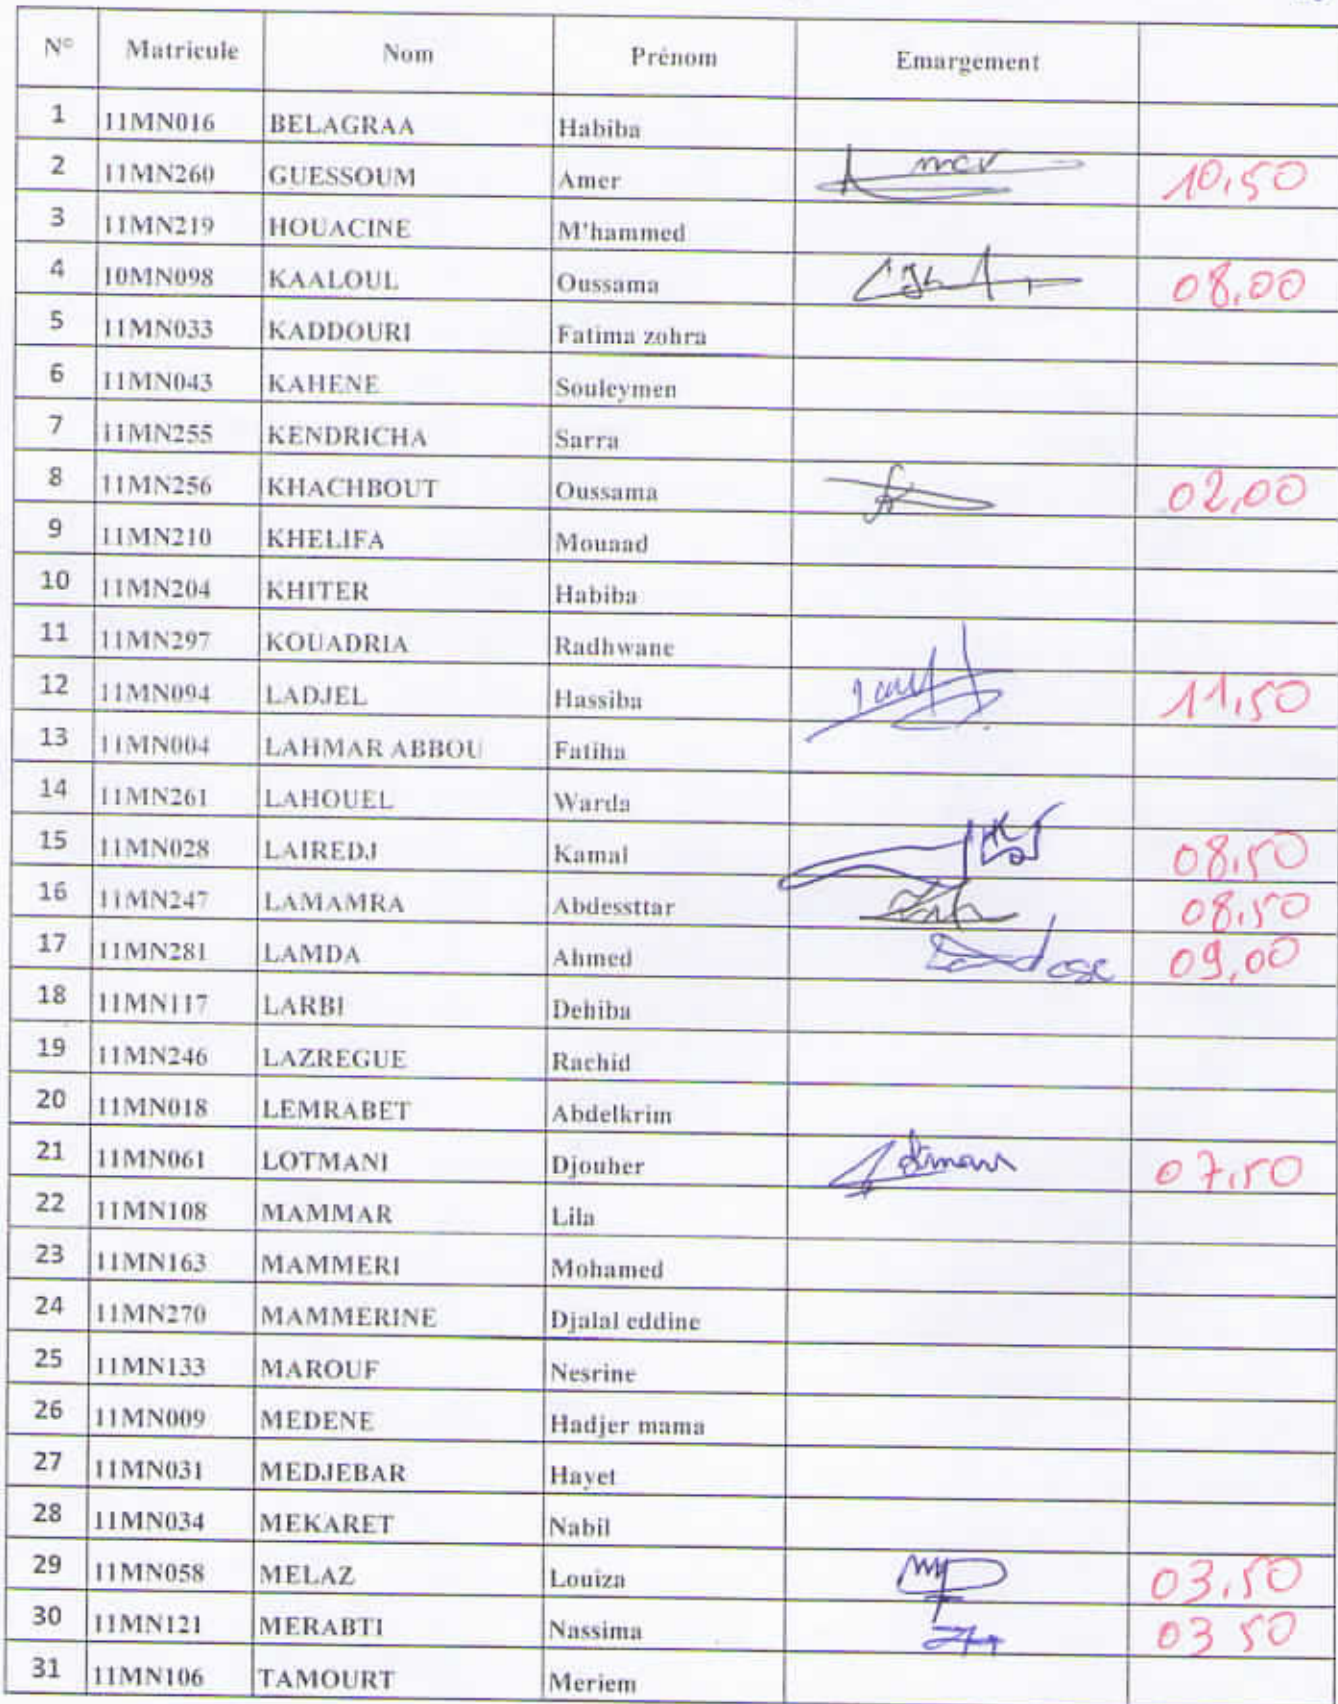 N° Matricule Nom Prénom Emargement
1 11MN016 BELAGRAA Habiba
2 11MN260 GUESSOUM Amer 10,50
3 11MN219 HOUACINE M'hammed
4 10MN098 KAALOUL Oussama 08,00
5 11MN033 KADDOURI Fatima zohra
6 11MN043 KAHENE Souleymen
7 11MN255 KENDRICHA Sarra
8 11MN256 KHACHBOUT Oussama 02,00
9 11MN210 KHELIFA Mouaad
10 11MN204 KHITER Habiba
11 11MN297 KOUADRIA Radhwane
12 11MN094 LADJEL Hassiba 11,50
13 11MN004 LAHMAR ABBOU Fatiha
14 11MN261 LAHOUEL Warda
15 11MN028 LAIREDJ Kamal 08,50
16 11MN247 LAMAMRA Abdessttar 08,50
17 11MN281 LAMDA Ahmed 09,00
18 11MN117 LARBI Dehiba
19 11MN246 LAZREGUE Rachid
20 11MN018 LEMRABET Abdelkrim
21 11MN061 LOTMANI Djouher 07,50
22 11MN108 MAMMAR Lila
23 11MN163 MAMMERI Mohamed
24 11MN270 MAMMERINE Djalal eddine
25 11MN133 MAROUF Nesrine
26 11MN009 MEDENE Hadjer mama
27 11MN031 MEDJEBAR Hayet
28 11MN034 MEKARET Nabil
29 11MN058 MELAZ Louiza 03,50
30 11MN121 MERABTI Nassima 03 50
31 11MN106 TAMOURT Meriem